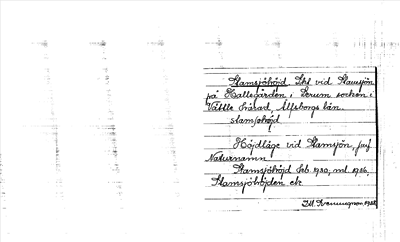 Stamsjöhöjd Lht vid Stamsjön
på Hallegården i Lerum socken i
Vättle härad, Älfsborgs län.
stamsjöhöjd
Höjdläge vid Stamsjön, jmf
Naturnamn
Stamsjöhöjd 1930, 1936,
Stamsjöhöjden